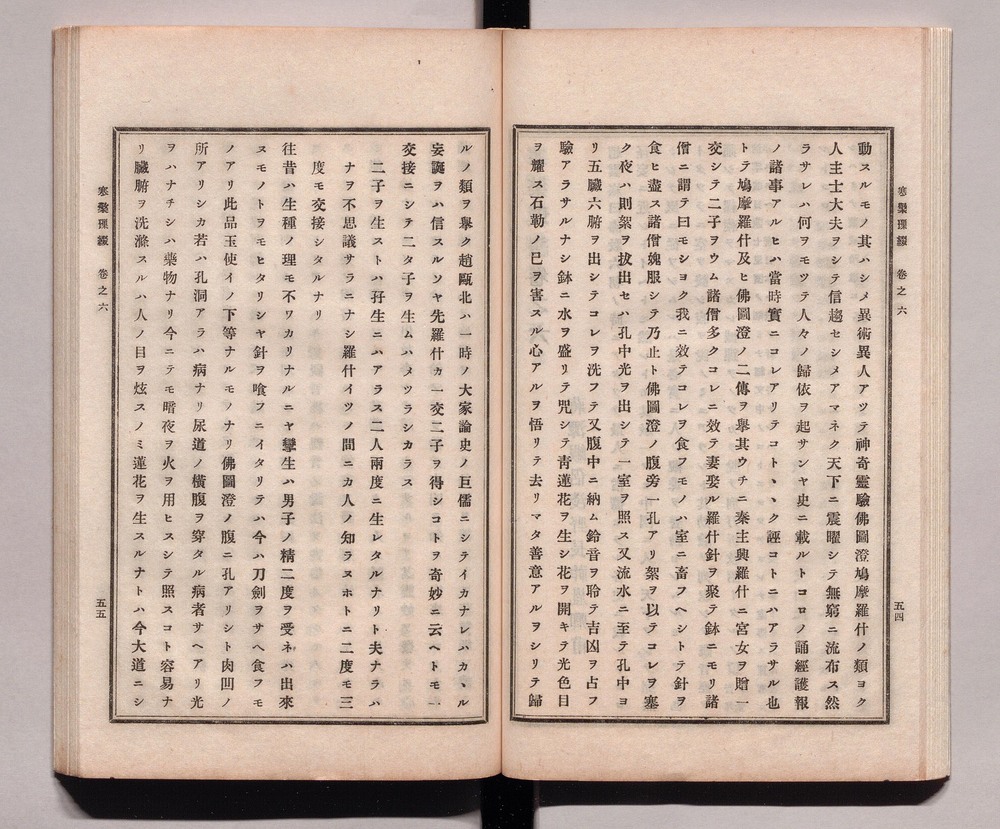 寒檠璅綴 卷之六 五四
動スルモノ其ハシメ異術異人アツテ神奇靈驗佛圖澄鳩摩羅什ノ類ヨク
人主士大夫ヲシテ信趨セシメアマネク天下ニ震曜シテ無窮ニ流布ス然
ラサレハ何ヲモツテ人々ノ歸依ヲ起サンヤ史ニ載ルトコロノ誦經護報
ノ諸事アルヒハ當時實ニコレアリテコト〻ク誣コトニハアラサル也
トテ鳩摩羅什及ヒ佛圖澄ノ二傳ヲ舉其ウチニ秦主興羅什ニ宮女ヲ贈一
交シテ二子ヲウム諸僧多クコレニ效テ妻娶ル羅什針ヲ聚テ鉢ニモリ諸
僧ニ謂テ曰モショク我ニ效テコレヲ食フモノハ室ニ畜フヘシトテ針ヲ
食ヒ盡ス諸僧媿服シテ乃止ト佛圖澄ノ腹旁一孔アリ絮ヲ以テコレヲ塞
ク夜ハ則絮ヲ拔出セハ孔中光ヲ出シテ一室ヲ照ス又流水ニ至テ孔中ヨ
リ五臟六腑ヲ出シテコレヲ洗フテ又腹中ニ納ム鈴音ヲ聆テ吉凶ヲ占フ
驗アラサルナシ鉢ニ水ヲ盛リテ咒シテ靑蓮花ヲ生シ花ヲ開キテ光色目
ヲ耀ス石勒ノ巳ヲ害スル心アルヲ悟リテ去リマタ善意アルヲシリテ歸
ルノ類ヲ擧ク趙甌北ハ一時ノ大家論史ノ巨儒ニシテイカナレハカヽル
妄誕ヲハ信スルソヤ先羅什カ一交二子ヲ得シコトヲ奇妙ニ云ヘトモ一
交接ニシテ二タ子ヲ生ムハメツラシカラス
二子ヲ生ストハ孖生ニハアラス二人兩度ニ生レタルナリト夫ナラハ
ナヲ不思議サラニナシ羅什イツノ間ニカ人ノ知ラヌホトニ二度モ三
度モ交接シタルナリ
往昔ハ生種ノ理モ不ワカリナルニヤ孿生ハ男子ノ精二度ヲ受ネハ出來
スモノトヲモヒタリシヤ針ヲ喰フニイタリテハ今ハ刀劍ヲサヘ食フモ
ノアリ此品玉使イノ下等ナルモノナリ佛圖澄ノ腹ニ孔アリシト肉凹ノ
所アリシカ若ハ孔洞アラハ病ナリ尿道ノ橫腹ヲ穿タル病者サヘアリ光
ヲハナチシハ藥物ナリ今ニテモ暗夜ヲ火ヲ用ヒスシテ照スコト容易ナ
リ臟腑ヲ洗滌スルハ人ノ目ヲ炫スノミ蓮花ヲ生スルナトハ今大道ニシ
寒檠璅綴 卷之六 五五